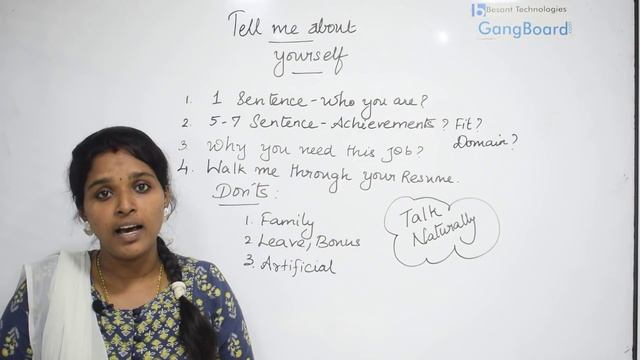 Besant Technologies
GangBoard.com
Tell me about
yourself
1. 1 Sentence - Who you are?
2. 5-7 Sentence - Achievements? Fit?
Domain?
3 Why you need this job?
4. Walk me through your Resume.
Don'ts:
1. Family
2 Leave, Bonus
3. Artificial
Talk
Naturally